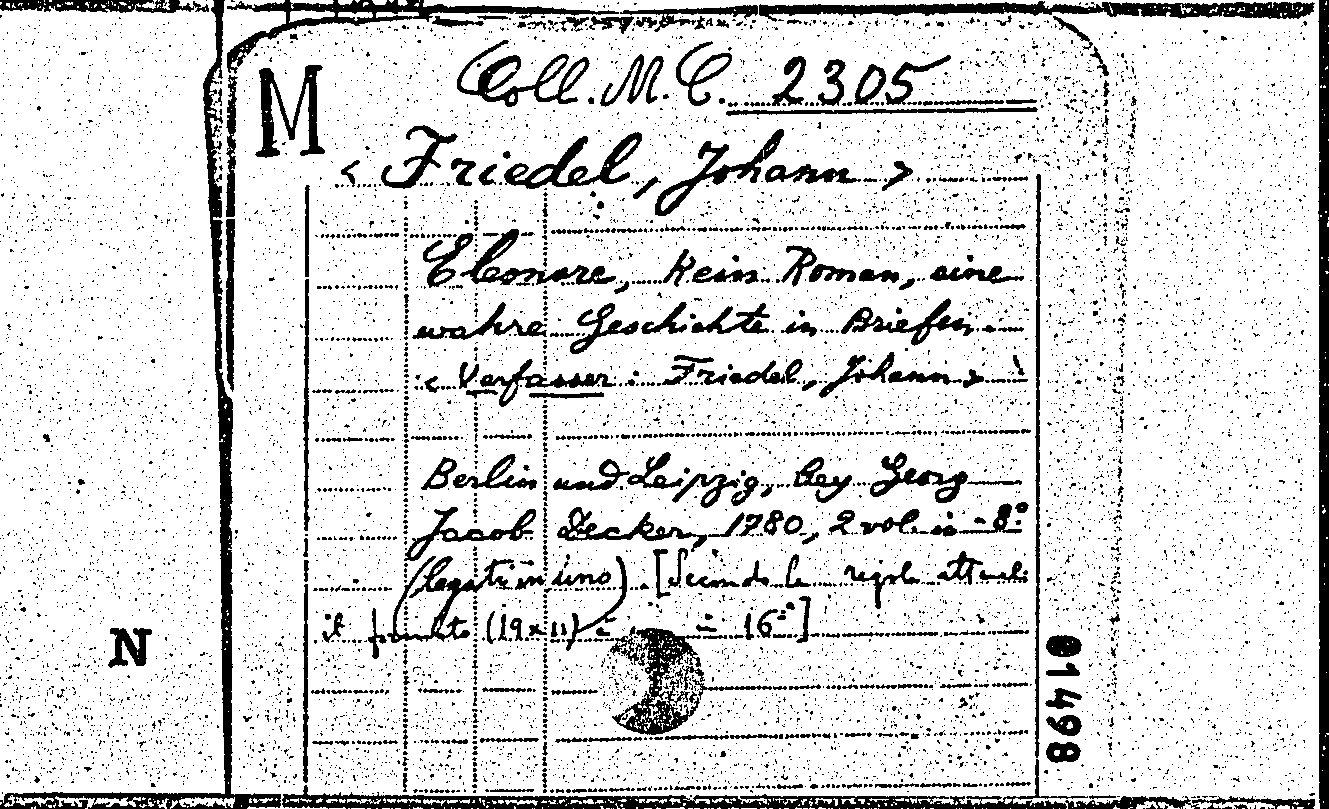 M
Coll. M. C. 2305
< Friedel, Johann >
Eleonore, Kein Roman, eine
wahre Geschichte in Briefen.
< Verfasser: Friedel, Johann >
Berlin und Leipzig, bey Georg
Jacob Decker, 1780, 2 vol. in - 8°
(legati in uno). [Secondo le regole attuali
il formato (19x11) è in 16°]
N
01498